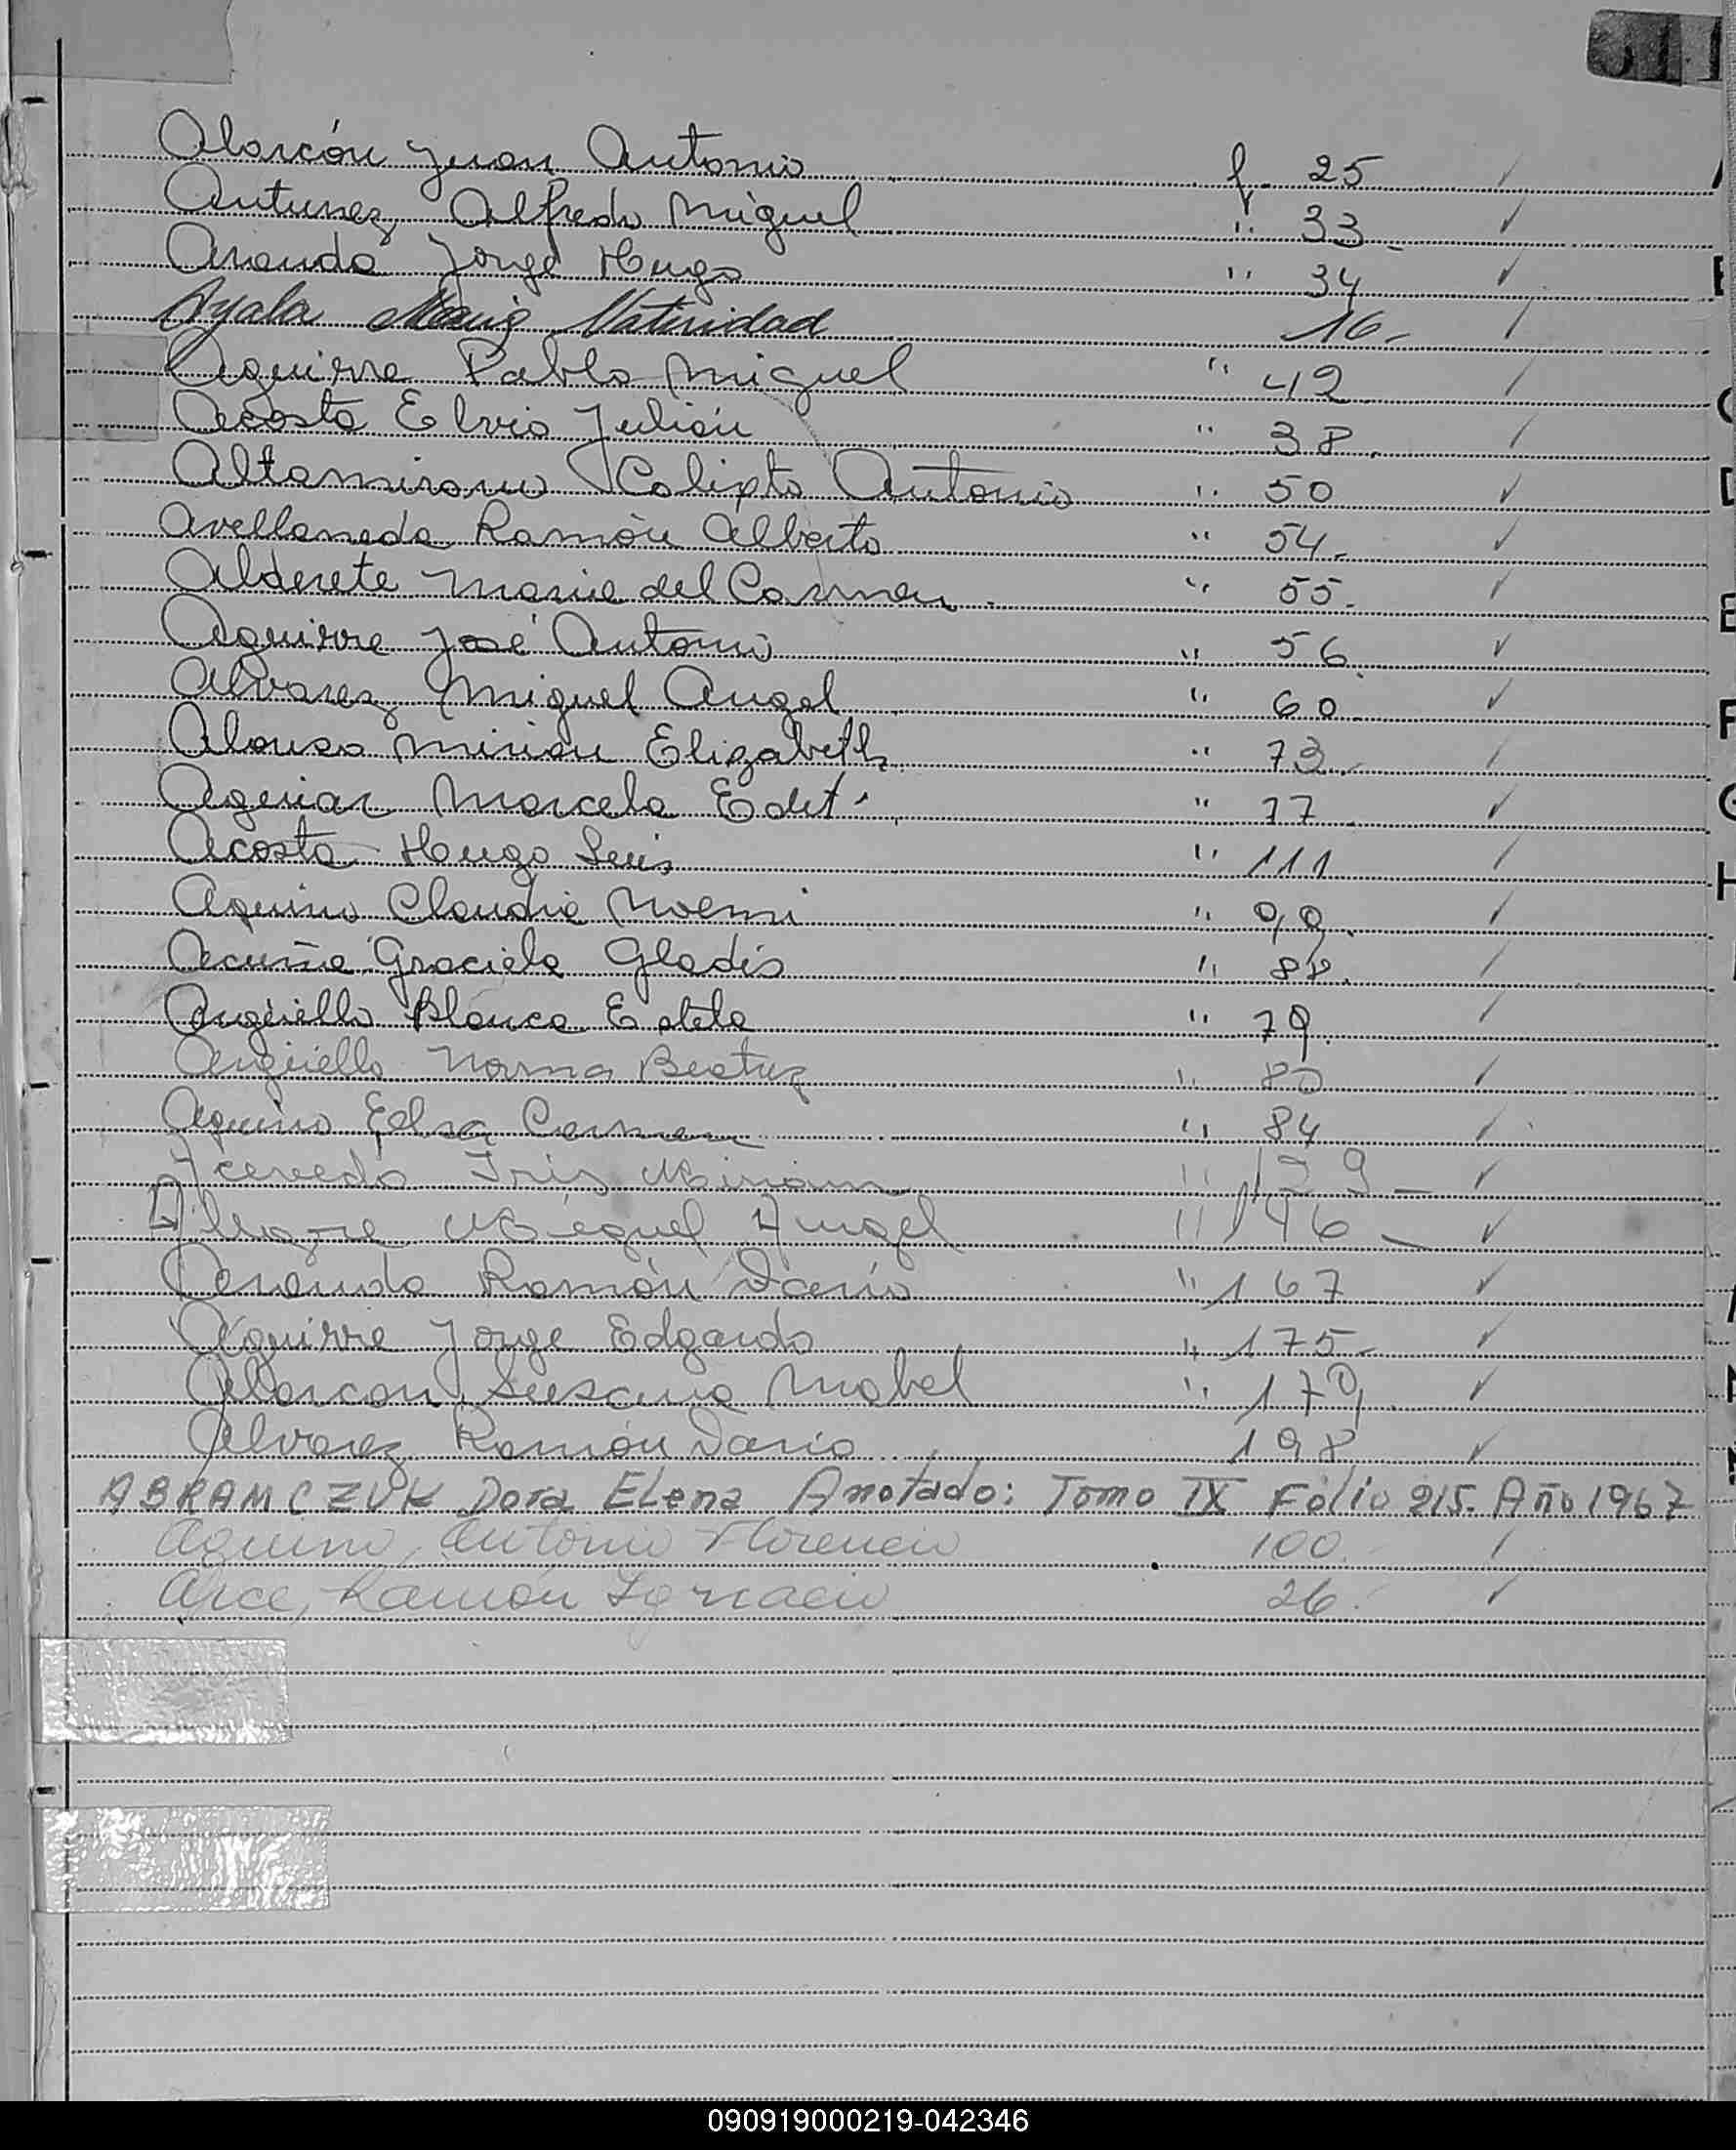 Alarcón Juan Antonio f. 25 ✓
Antunez Alfredo Miguel " 33 - ✓
Aranda Jorge Hugo " 34 ✓
Ayala María Natividad 16 - /
Aguirre Pablo Miguel " 42 /
Acosta Elvio Julián " 38. /
Altamirano Calixto Antonio " 50 ✓
Avellaneda Ramón Alberto " 54 - ✓
Alderete Maria del Carmen " 55 - ✓
Aguirre José Antonio " 56. ✓
Alvarez Miguel Angel " 60 - ✓
Alonso Mirian Elizabeth " 73 - /
Aguiar Marcela Edit " 77 ✓
Acosta Hugo Luis " 111 /
Aquino Claudia Noemi " 99. ✓
Acuña Graciela Gladis " 88. /
Argüello Blanca Estela " 79. /
Argüello Norma Beatriz " 80 ✓
Aquino Elsa Carmen " 84 ✓
Acevedo Iris Miriam " 129 - ✓
Alegre Miguel Angel " 146 - ✓
Aranda Ramón Dario " 167 ✓
Aguirre Jorge Edgardo " 175 - ✓
Alarcon Susana Mabel " 179. ✓
Alvarez Ramón Dario 198 ✓
ABRAMCZUK Dora Elena Anotado: Tomo IX Folio 215. Año 1967
Aquino, Antonio Florencio 100. /
Arce, Ramón Ignacio 26. ✓
090919000219-042346